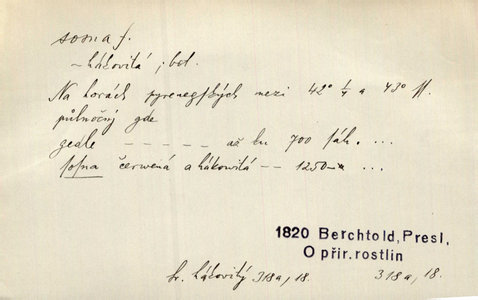 sosna f.
~ hákovitá ; bot.
Na horách pyrenegských mezi 42° 1/4 a 43° ff.
půlnočný gde
gedle - - - - - až ku 700 sáh. ...
sosna červená a hákovitá - - 1250 - ...
1820 Berchtold, Presl,
O přir. rostlin
sr. hákovitý 318a, 18.
318a, 18.